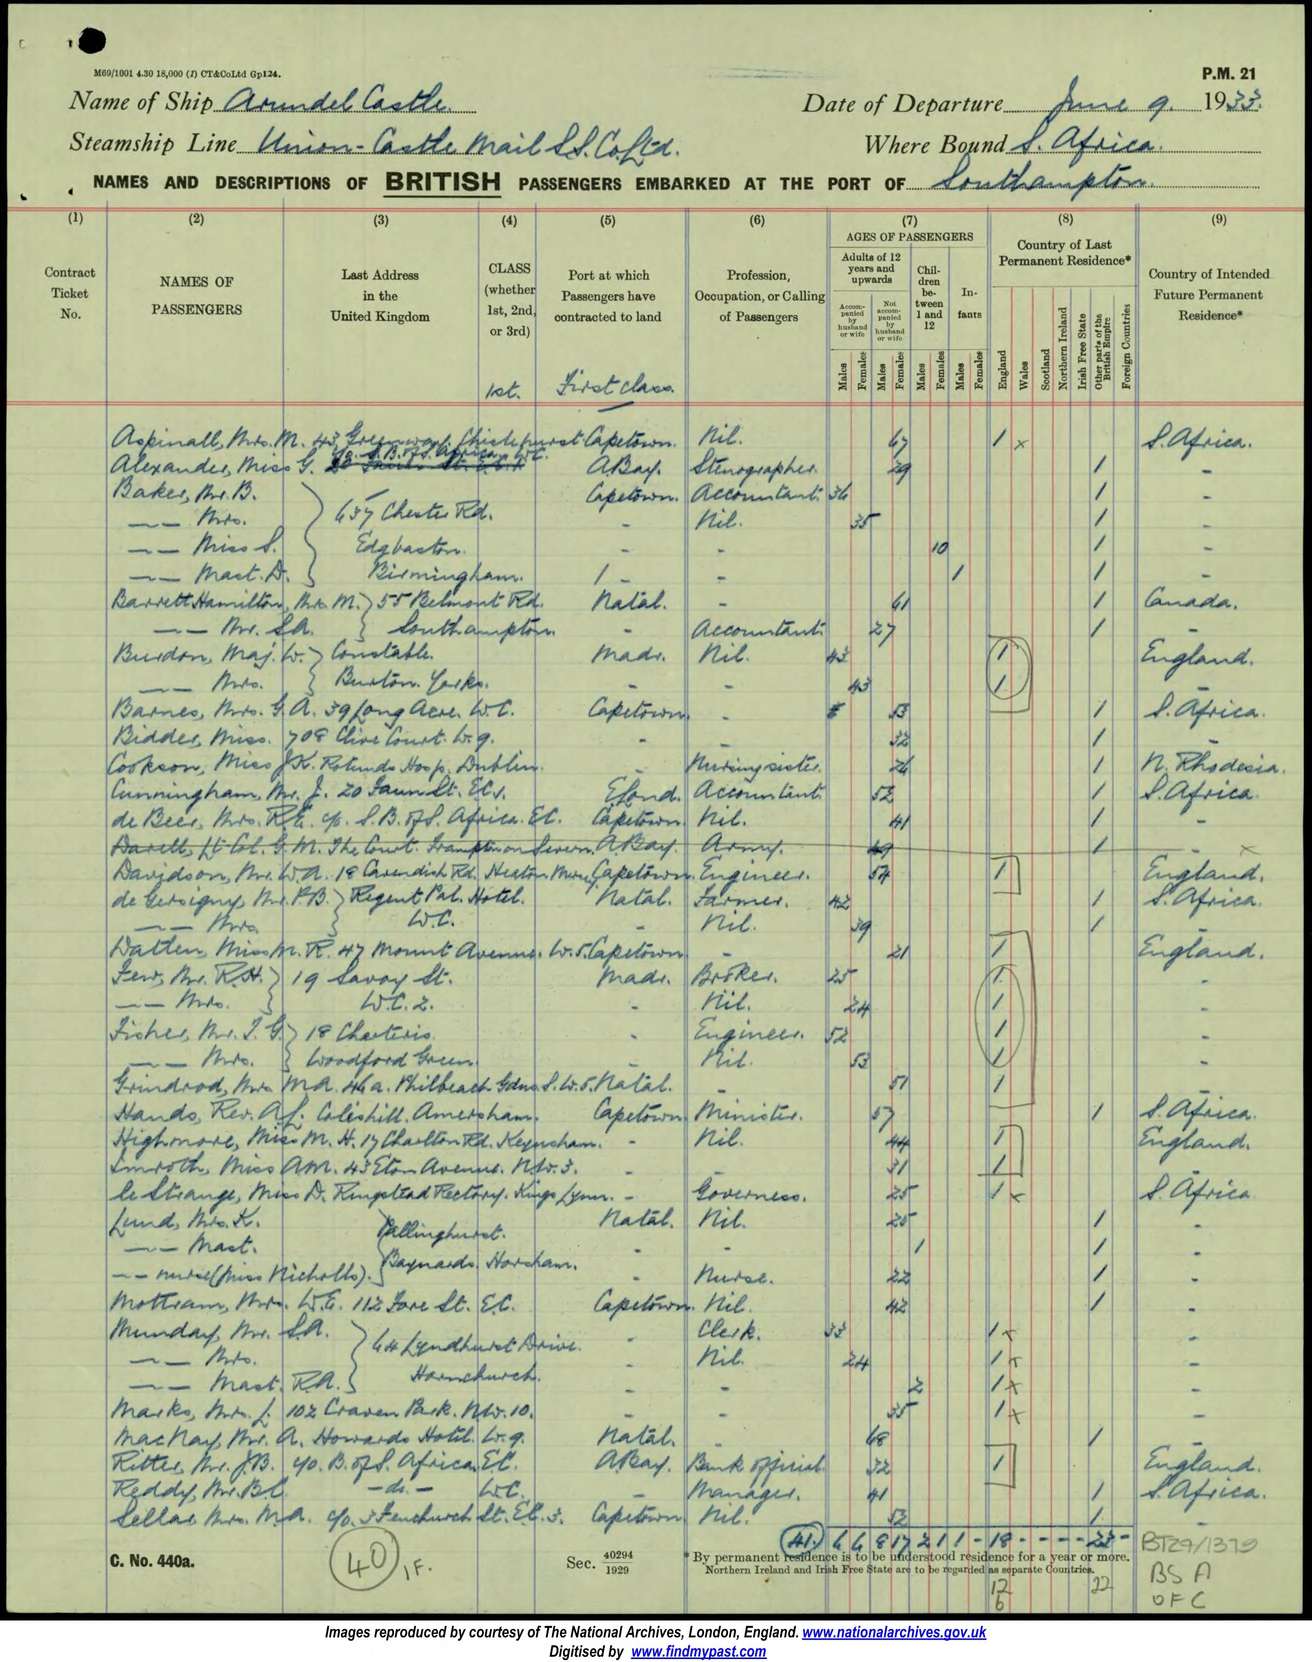 M69/1001 4.30 18,000 (1) CT&CoLtd Gp124.
P.M. 21
Name of Ship Arundel Castle. Date of Departure June 9. 1933.
Steamship Line Union-Castle Mail S.S. Co. Ltd. Where Bound S. Africa.
NAMES AND DESCRIPTIONS OF BRITISH PASSENGERS EMBARKED AT THE PORT OF Southampton.
(1) (2) (3) (4) (5) (6) (7) (8) (9)
Contract Ticket No.
NAMES OF PASSENGERS
Last Address in the United Kingdom
CLASS (whether 1st, 2nd, or 3rd)
Port at which Passengers have contracted to land
Profession, Occupation, or Calling of Passengers
AGES OF PASSENGERS
Adults of 12 years and upwards
Accompanied by husband or wife
Not accompanied by husband or wife
Children between 1 and 12
Infants
Males Females Males Females Males Females Males Females
Country of Last Permanent Residence*
England Wales Scotland Northern Ireland Irish Free State Other parts of the British Empire Foreign Countries
Country of Intended Future Permanent Residence*
1st. First class.
Aspinall, Mrs. M. 43, Greenway. Chislehurst. Capetown. Nil. 67 1 x S. Africa.
c/o. S.B. of S. Africa. W.C.
Alexander, Miss G. A Bay. Stenographer. 29 1 -
Baker, Mr. B. Capetown. Accountant. 36 1 -
-- Mrs. 637 Chester Rd. - Nil. 35 1 -
-- Miss S. Edgbaston. - - 10 1 -
-- Mast. D. Birmingham. - - 1 1 -
Barrett Hamilton, Mrs. M. 55 Belmont Rd. Natal. - 61 1 Canada.
-- Mr. S.A. Southampton. - Accountant. 27 1 -
Burdon, Maj. W. Constable. Madr. Nil. 43 1 England.
-- Mrs. Burton. Yorks. - - 43 1 -
Barnes, Mrs. G.A. 39 Long Acre. W.C. Capetown. - 53 1 S. Africa.
Bidder, Miss. 708 Clive Court. W.9. - - 32 1 -
Cookson, Miss J.K. Rotunda Hosp. Dublin. - Nursing sister. 26 1 N. Rhodesia.
Cunningham, Mr. J. E Lond. Accountant. 52 1 S. Africa.
de Beer, Mrs. R.E. c/o. S.B. of S. Africa. E.C. Capetown. Nil. 41 1 -
Darell, Lt Col. G.M. The Court. Frampton on Severn. A Bay. Army. 49 1 - x
Davidson, Mr. W.A. 18 Cavendish Rd. Heaton Capetown. Engineer. 54 1 England.
de Gersigny, Mr. P.B. Regent Pal. Hotel. Natal. Farmer. 42 1 S. Africa.
-- Mrs. W.C. - Nil. 39 1 -
Miss M.R. 47 Mount Avenue. W.5. Capetown. - 21 1 England.
Few, Mr. R.H. 19 Savoy St. Madr. Broker. 25 1 -
-- Mrs. W.C.2. - Nil. 24 1 -
Fisher, Mr. T.G. 18 Charteris. - Engineer. 52 1 -
-- Mrs. Woodford Green. - Nil. 53 1 -
Grindrod, Mrs. M.A. 46a. Philbeach Gdns. S.W.5. Natal. - 51 1 -
Hands, Rev. A.L. Coleshill. Amersham. Capetown. Minister. 57 1 S. Africa.
Highmore, Miss M.H. 17 Charlton Rd. Keynsham. - Nil. 44 1 England.
Miss A.M. 43 Eton Avenue. N.W.3. - - 31 1 -
le Strange, Miss D. Ringstead Rectory. Kings Lynn. - Governess. 25 1 x S. Africa
Lund, Mrs. K. Natal. Nil. 25 1 -
-- Mast. - - 1 1 -
-- nurse (Miss Nicholls). Baynards. Horsham. - Nurse. 22 1 -
Mottram, Mrs. W.E. 112 Fore St. E.C. Capetown. Nil. 42 1 -
Munday, Mr. S.A. - Clerk. 33 1 x -
-- Mrs. 64 Lyndhurst Drive. - Nil. 24 1 x -
-- Mast. R.A. Hornchurch. - - 2 1 x -
Marks, Mrs. L. 102 Craven Park. N.W.10. - - 35 1 x -
MacNay, Mr. A. Howards Hotel. W.9. Natal. - 68 1 -
Ritter, Mr. J.B. c/o. B. of S. Africa. E.C. A Bay. Bank official. 32 1 England.
Reddy, Mr. B.C. -do- W.C. - Manager. 41 1 S. Africa.
Sellar Mrs. M.A. c/o. 3 Fenchurch St. E.C.3. Capetown Nil. 52 1 -
41. 6 6 8 17 2 1 1 - 18 - - - - 23 -
C. No. 440a.
40 1 F.
Sec. 40294/1929
* By permanent residence is to be understood residence for a year or more.
Northern Ireland and Irish Free State are to be regarded as separate Countries.
12 22
6
BT27/1379
BS A
OF C
Images reproduced by courtesy of The National Archives, London, England. www.nationalarchives.gov.uk
Digitised by www.findmypast.com